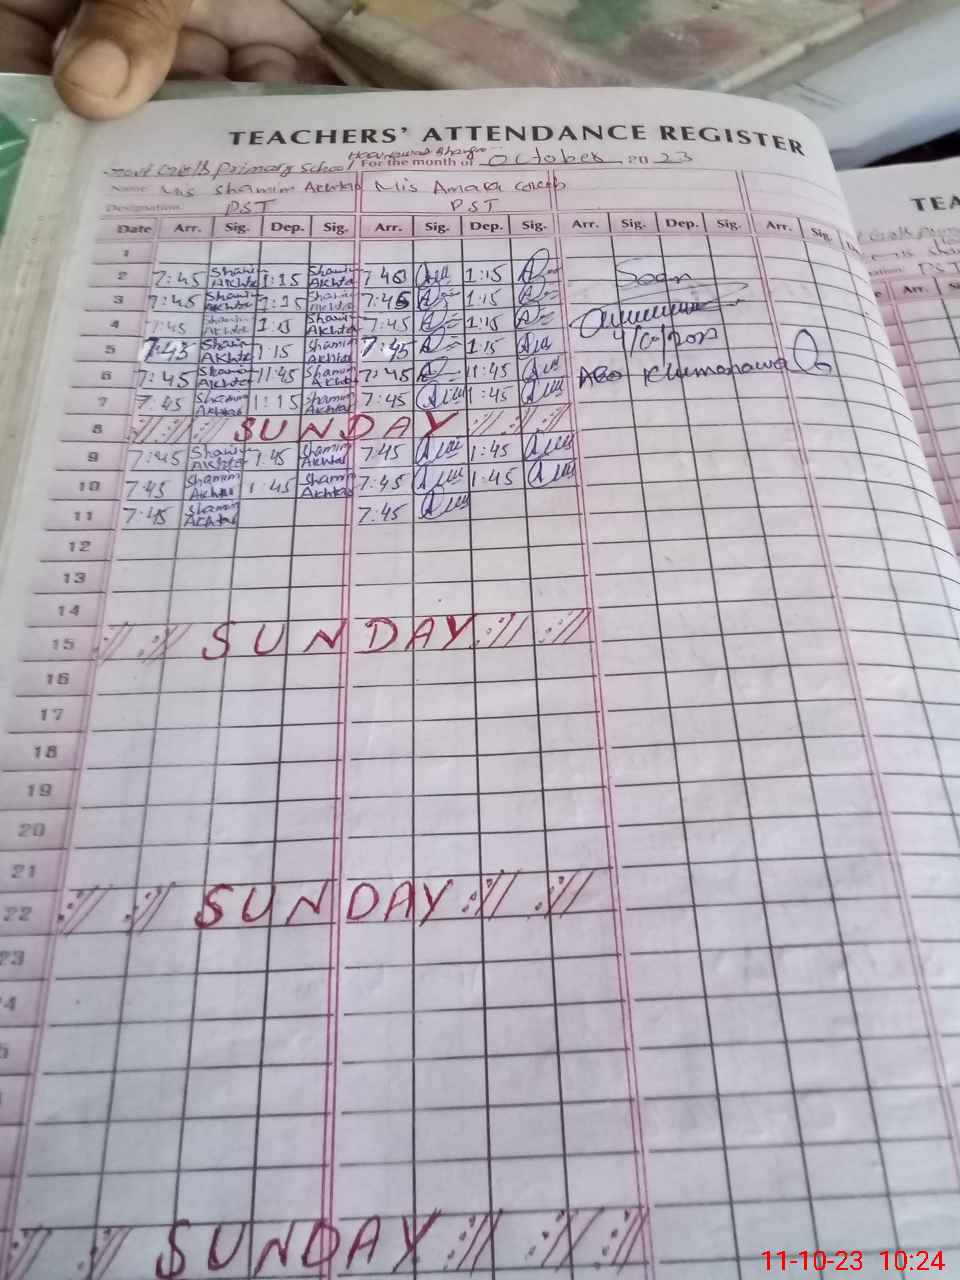 TEACHERS' ATTENDANCE REGISTER
Govt Girls Primary School For the month of October 2023
Name Mis Shamim Akhtar Mis Amara
Designation: PST PST
Date Arr. Sig. Dep. Sig. Arr. Sig. Dep. Sig. Arr. Sig. Dep. Sig. Arr. Sig.
1
2 7:45 Shamim Akhtar 1:15 Shamim Akhtar 7:45 1:15 Seen
3 7:45 Shamim Akhtar 1:15 Shamim Akhtar 7:45 1:15
4 7:45 Shamim Akhtar 1:15 Shamim Akhtar 7:45 1:15
5 7:45 Shamim Akhtar 1:15 Shamim Akhtar 7:45 1:15
6 7:45 Shamim Akhtar 11:45 Shamim Akhtar 7:45 11:45
7 7:45 Shamim Akhtar 1:15 Shamim Akhtar 7:45 1:45
8 SUNDAY
9 7:45 Shamim Akhtar 1:45 Shamim Akhtar 7:45 1:45
10 7:45 Shamim Akhtar 1:45 Shamim Akhtar 7:45 1:45
11 7:45 Shamim Akhtar 7:45
12
13
14
15 SUNDAY
16
17
18
19
20
21
22 SUNDAY
23
SUNDAY
TEA
PST
Arr.
11-10-23 10:24